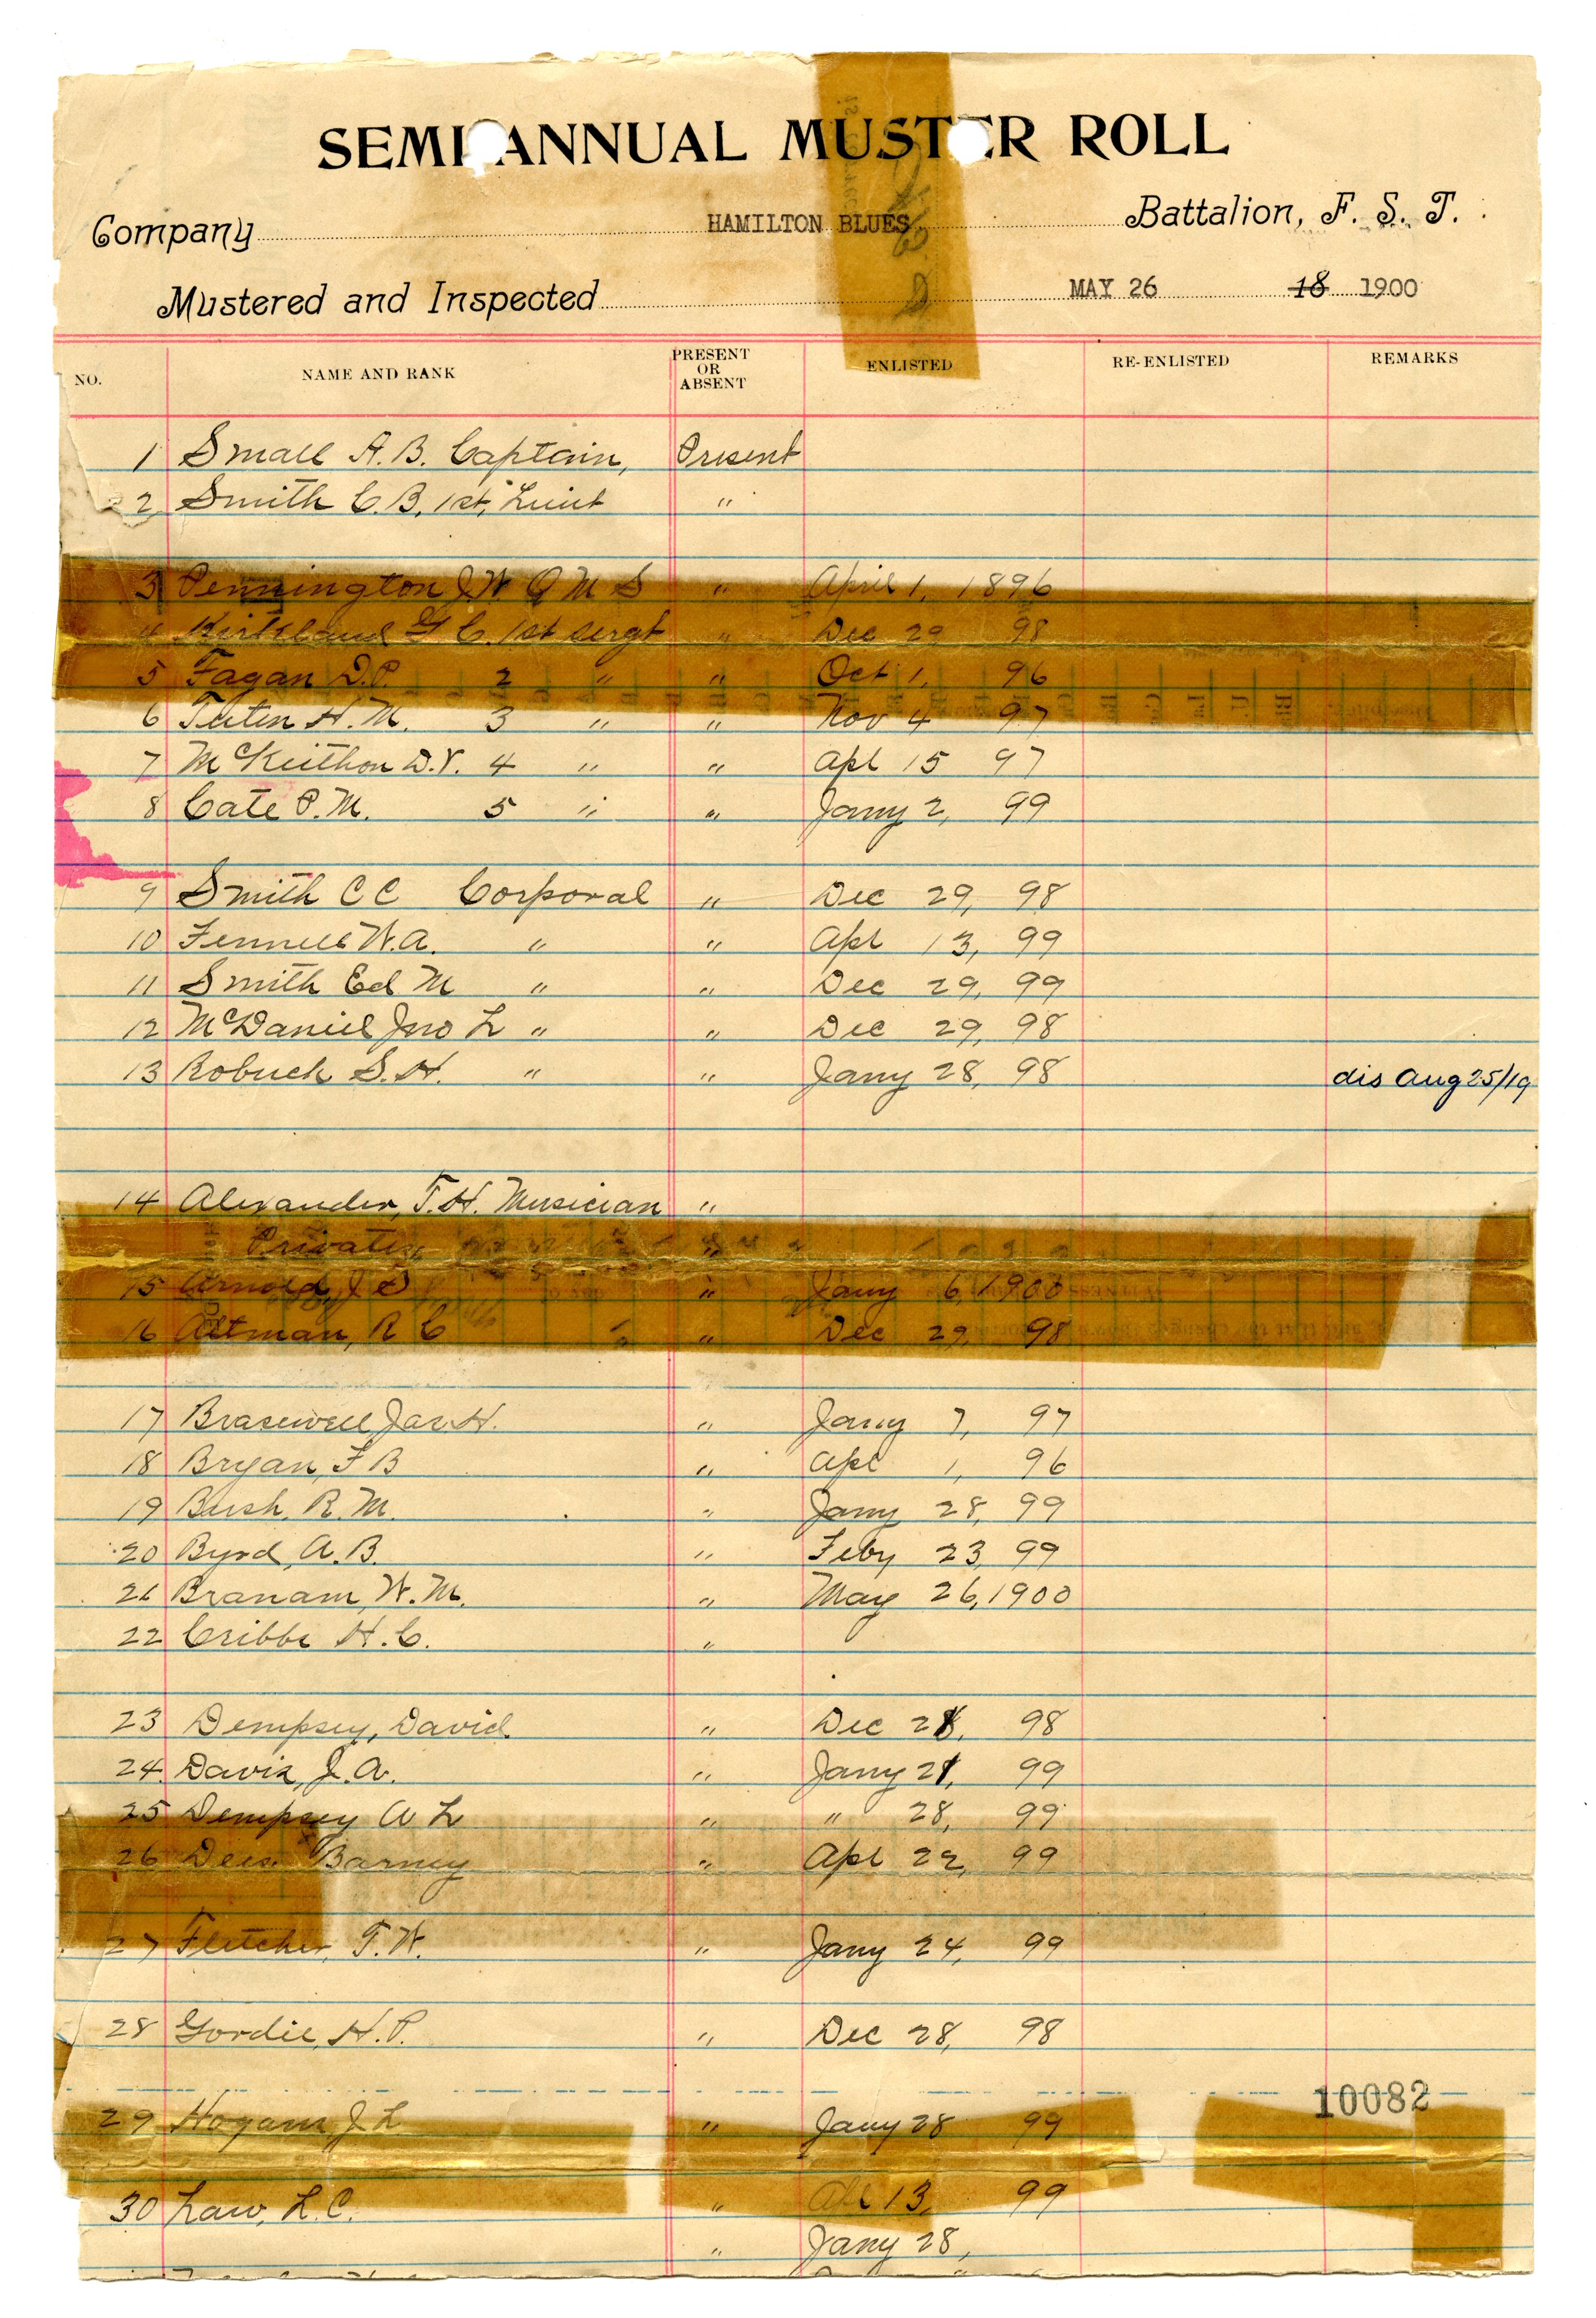 SEMI-ANNUAL MUSTER ROLL
Company HAMILTON BLUES. Battalion, F. S. T.
Mustered and Inspected MAY 26 18 1900
NO. NAME AND RANK PRESENT OR ABSENT ENLISTED RE-ENLISTED REMARKS
1 Small A. B. Captain, Present
2 Smith C. B. 1st, Lieut "
3 Pennington J W Q M S " April 1, 1896
4 Kirkland G C. 1st Sergt " Dec 29 98
5 Fagan D. P. 2 " " Oct 1, 96
6 Tuten H. M. 3 " " Nov 4 97
7 McKeithon D. Y. 4 " " Apl 15 97
8 Cate P. M. 5 " " Jany 2, 99
9 Smith C C Corporal " Dec 29, 98
10 Fennell W. A. " " Apl 13, 99
11 Smith Ed M " " Dec 29, 99
12 McDaniel Jno L " " Dec 29, 98
13 Robuck S. H. " " Jany 28, 98 dis Aug 25/19
14 Alexander, T. H. Musician "
Privates "
15 Arnold, J S " Jany 6, 1900
16 Altman, R C " Dec 29, 98
17 Brasewell Jas. H. " Jany 7, 97
18 Bryan, F B " Apl 1, 96
19 Bush, R. M. " Jany 28, 99
20 Byrd, A. B. " Feby 23, 99
21 Branam, W. M. " May 26, 1900
22 Cribbs H. C. "
23 Dempsey, David " Dec 28, 98
24. Davis, J. A. " Jany 21, 99
25 Dempsey A L " " 28, 99
26 Dees. Barney " Apl 22, 99
27 Fletcher, T. W. " Jany 24, 99
28 Gordie, H. P. " Dec 28, 98
10082
29 Hogans J L " Jany 28 99
30 Law, L. C. " Apl 13, 99
" Jany 28,